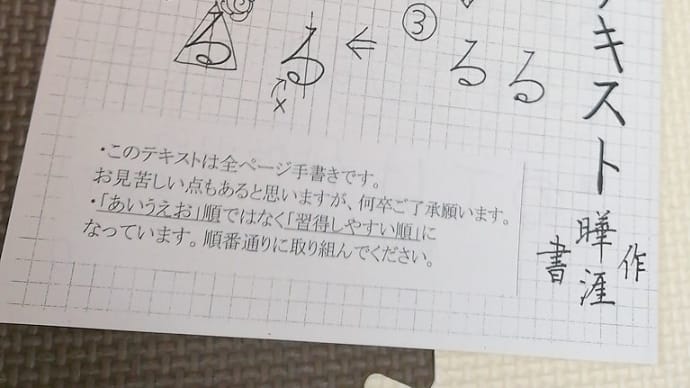 テキスト
曄涯
書作
③
る
る
る
る
×
・このテキストは全ページ手書きです。
お見苦しい点もあると思いますが、何卒ご了承願います。
・「あいうえお」順ではなく「習得しやすい順」に
なっています。順番通りに取り組んでください。